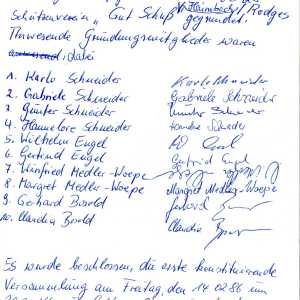 Schützenverein „Gut Schuß" Haimbach/Rodges
gegründet.
Anwesende Gründungsmitglieder waren
dabei
1. Karlo Schneider Karlo Schneider
2. Gabriele Schneider Gabriele Schneider
3. Günter Schneider Günter Schneider
4. Hannelore Schneider Hannelore Schneider
5. Wilhelm Engel W. Engel
6. Gertrud Engel Gertrud Engel
7. Winfried Medler-Woepe
8. Margret Medler-Woepe Margret Medler-Woepe
9. Gerhard Borold Gerhard
10. Claudia Borold Claudia
Es wurde beschlossen, die erste konstituierende
Versammlung am Freitag, den 14.02.86 um